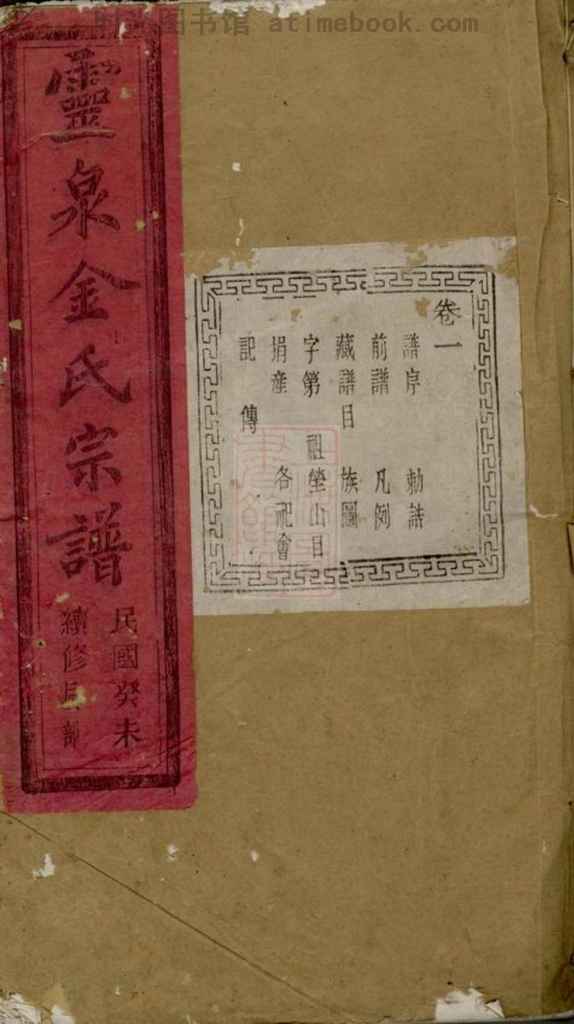 图书馆 atimebook.com
靈泉金氏宗譜
民國癸未
續修
卷一
譜序 勅誥
前譜 凡例
藏譜目 族圖
字第 祖塋山目
捐產 各祀會
記 傳